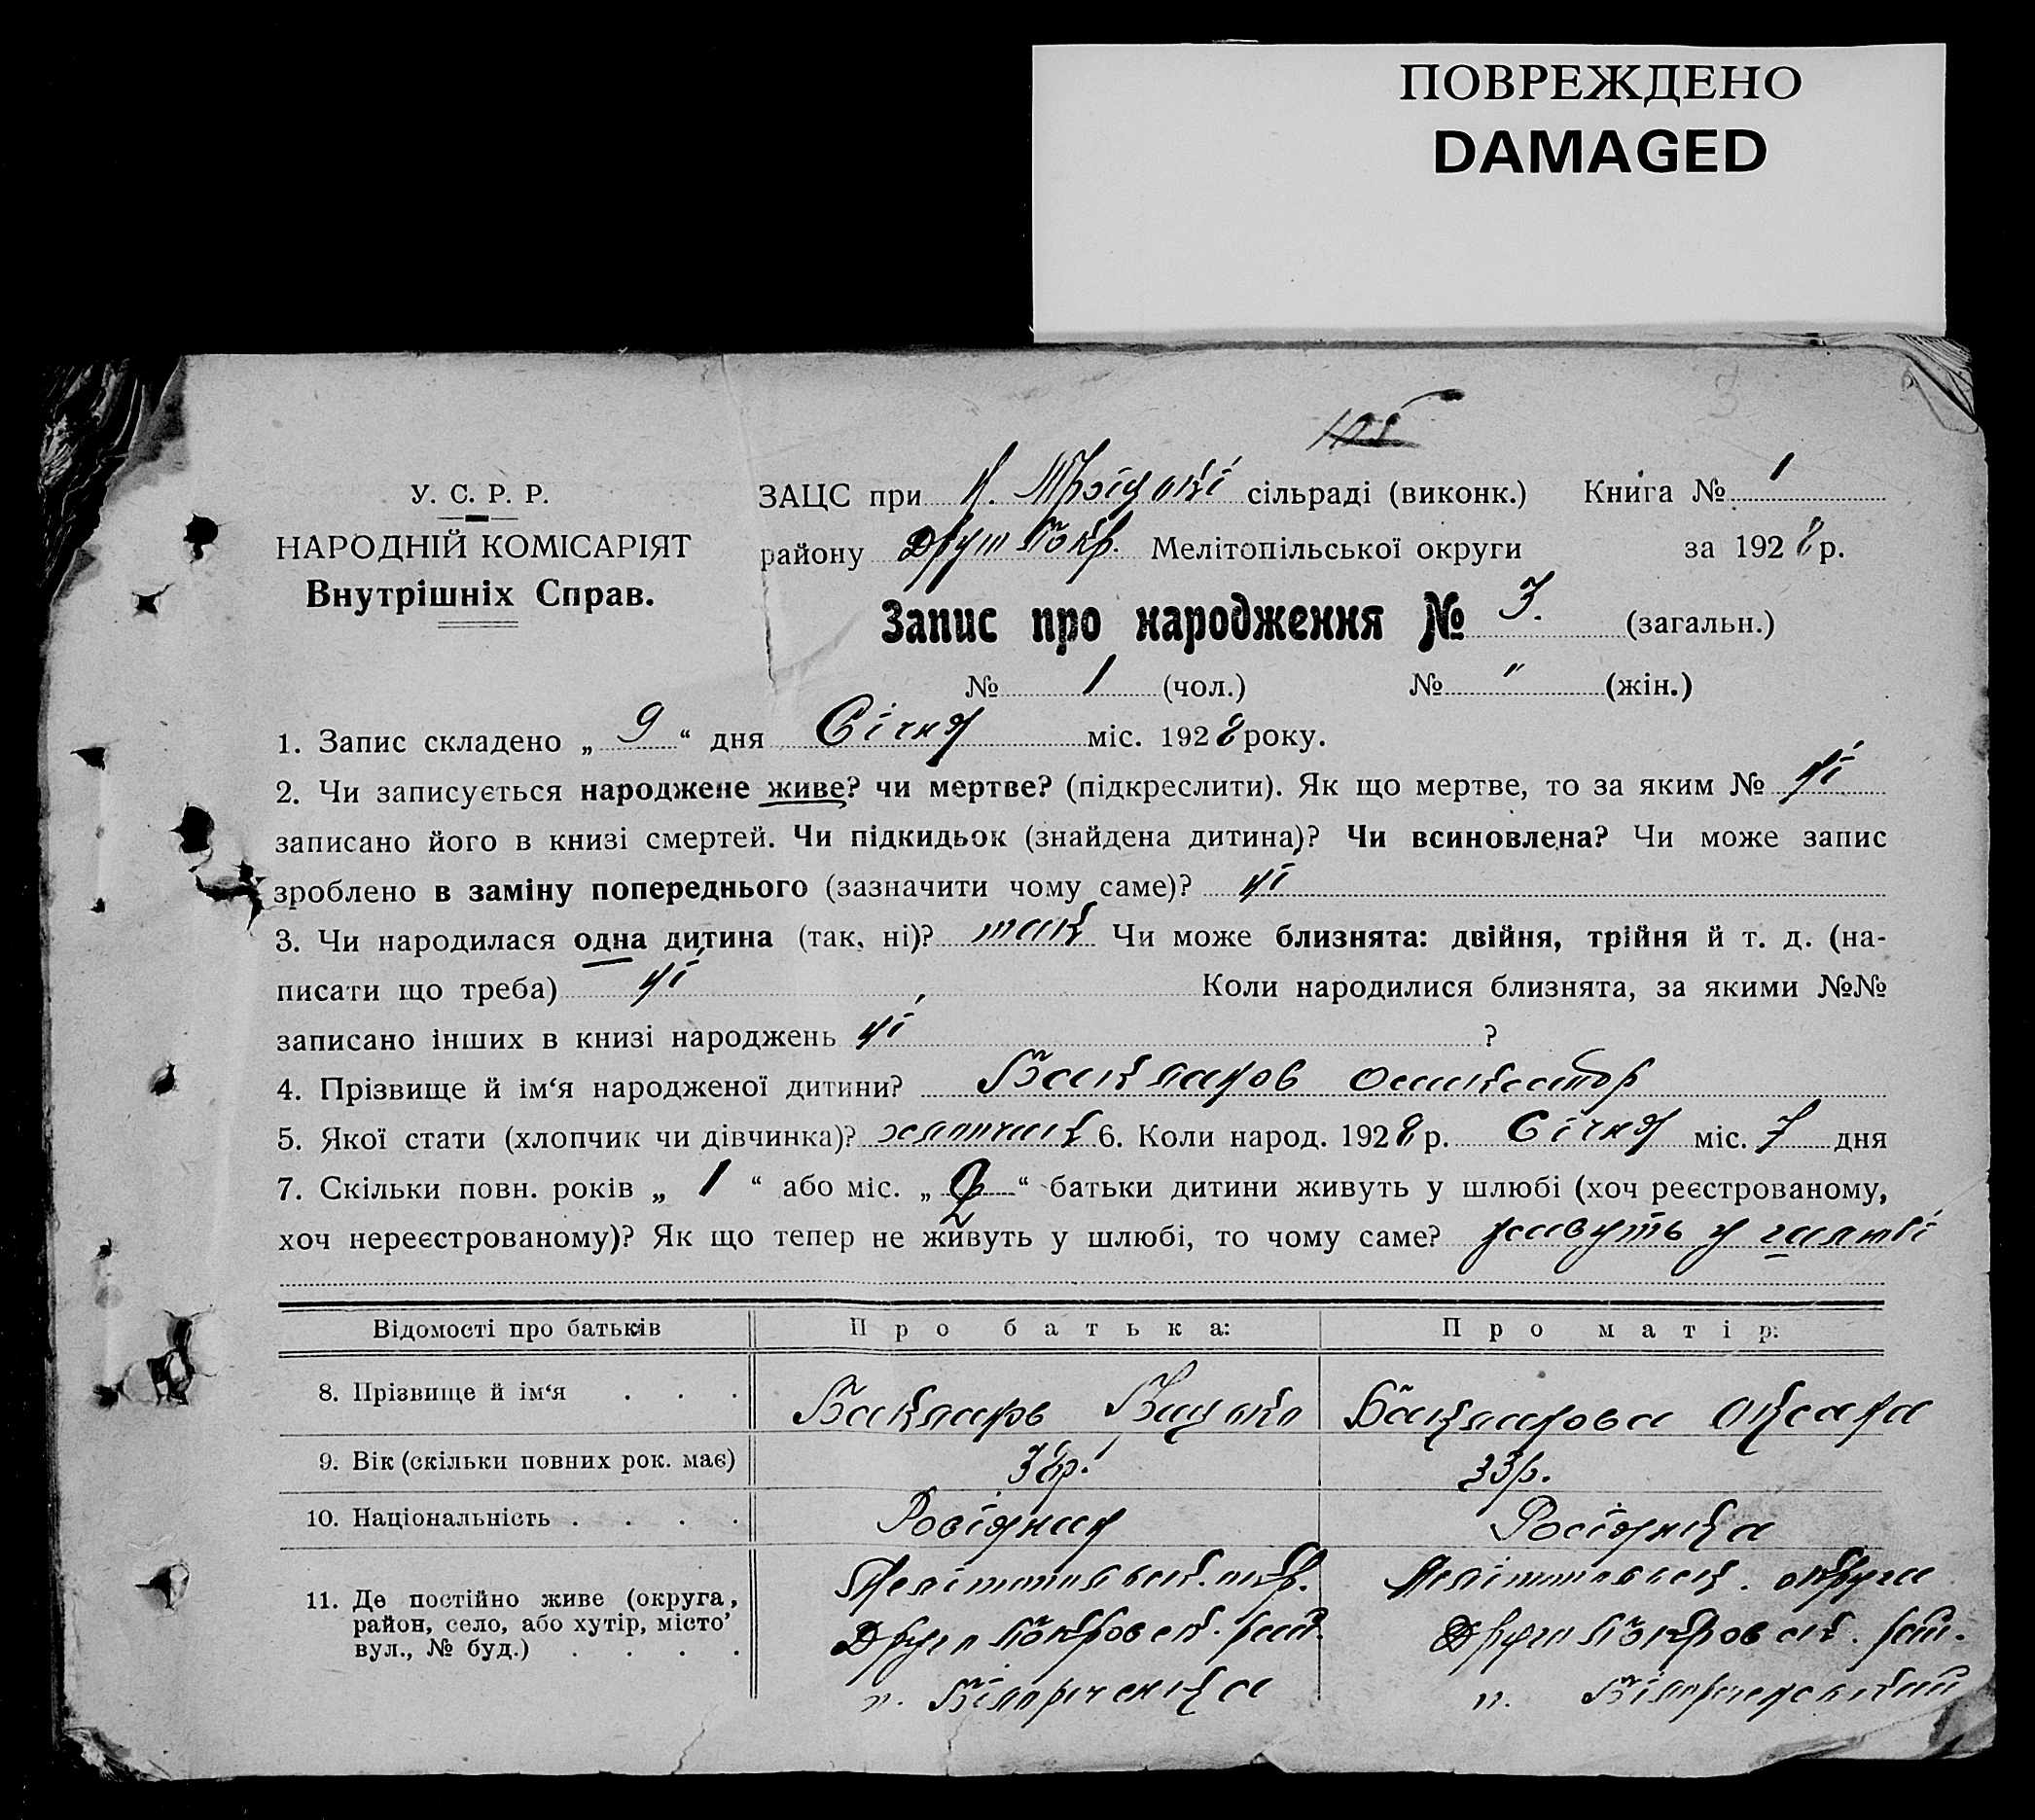 ПОВРЕЖДЕНО
DAMAGED
У. С. Р. Р.
НАРОДНІЙ КОМІСАРІЯТ
Внутрішніх Справ.
ЗАЦС при Н. Троїцькі сільраді (виконк.) Книга № 1
району Друг Покр. Мелітопільської округи за 1928 р.
Запис про народження № 3. (загальн.)
№ 1 (чол.) № " (жін.)
1. Запис складено „ 9 “ дня Січня міс. 1928 року.
2. Чи записується народжене живе? чи мертве? (підкреслити). Як що мертве, то за яким № ні
записано його в книзі смертей. Чи підкидьок (знайдена дитина)? Чи всиновлена? Чи може запис
зроблено в заміну попереднього (зазначити чому саме)? ні
3. Чи народилася одна дитина (так, ні)? так Чи може близнята: двійня, трійня й т. д. (на-
писати що треба) ні Коли народилися близнята, за якими №№
записано інших в книзі народжень ні ?
4. Прізвище й ім‘я народженої дитини?
5. Якої стати (хлопчик чи дівчинка)? хлопчик 6. Коли народ. 1928 р. Січня міс. 7 дня
7. Скільки повн. років „ 1 “ або міс. „ “ батьки дитини живуть у шлюбі (хоч реєстрованому,
хоч нереєстрованому)? Як що тепер не живуть у шлюбі, то чому саме? живуть у шлюбі
Відомості про батьків Про батька: Про матір:
8. Прізвище й ім‘я . . .
9. Вік (скільки повних рок. має) 38р. 33р.
10. Національність . . . . Росіянин Росіянка
11. Де постійно живе (округа, район, село, або хутір, місто’ вул., № буд.) . . . .
Мелітопольськ. окр. Мелітопольськ. округа
Друго Покровськ. рай. Друго Покровськ. рай.